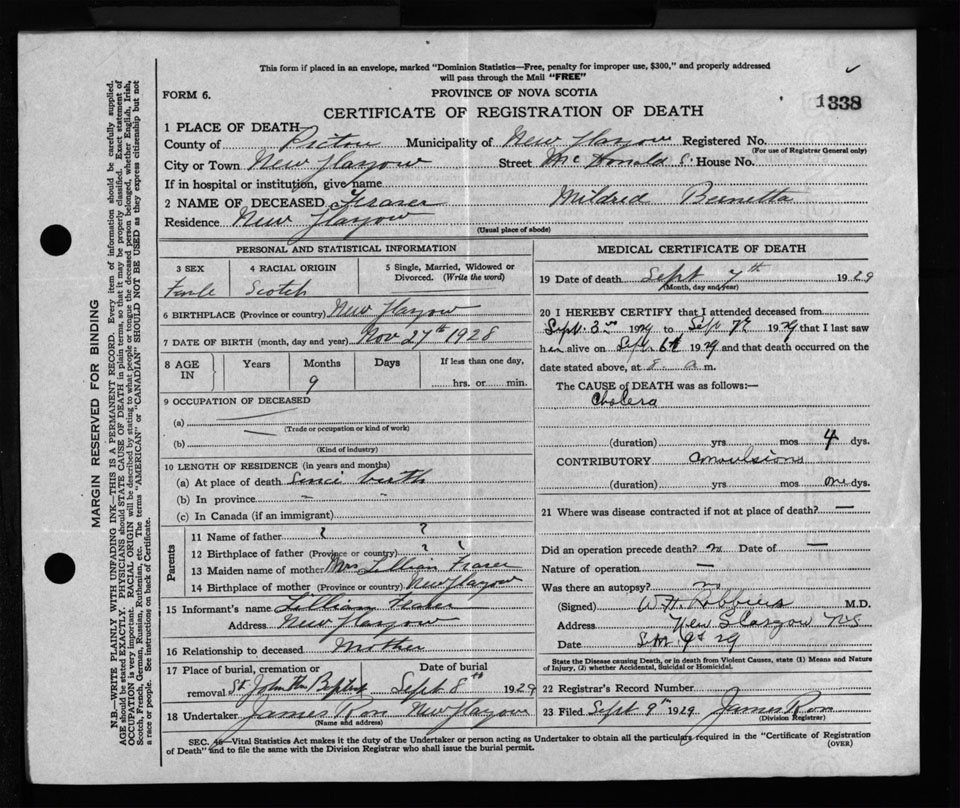 This form if placed in an envelope, marked "Dominion Statistics—Free, penalty for improper use, $300," and properly addressed
will pass through the Mail "FREE"
FORM 6.
PROVINCE OF NOVA SCOTIA
1338
CERTIFICATE OF REGISTRATION OF DEATH
1 PLACE OF DEATH—
County of Pictou Municipality of New Glasgow Registered No.
(For use of Registrar General only)
City or Town New Glasgow Street McDonald S. House No.
If in hospital or institution, give name
2 NAME OF DECEASED Fraser Mildred Bernetta
Residence New Glasgow
(Usual place of abode)
PERSONAL AND STATISTICAL INFORMATION
3 SEX 4 RACIAL ORIGIN 5 Single, Married, Widowed or Divorced. (Write the word)
Scotch
6 BIRTHPLACE (Province or country) New Glasgow
7 DATE OF BIRTH (month, day and year) Nov 27th 1928
8 AGE IN Years Months Days If less than one day,
9 hrs. or min.
9 OCCUPATION OF DECEASED
(a) —
(Trade or occupation or kind of work)
(b) —
(Kind of industry)
10 LENGTH OF RESIDENCE (in years and months)
(a) At place of death Since birth
(b) In province " "
(c) In Canada (if an immigrant)
Parents
11 Name of father ? ?
12 Birthplace of father (Province or country) ? ?
13 Maiden name of mother Mrs Lillian Fraser
14 Birthplace of mother (Province or country) New Glasgow
15 Informant's name Lillian Fraser
Address New Glasgow
16 Relationship to deceased Mother
17 Place of burial, cremation or Date of burial
removal St John the Baptist Sept 8th 1929
18 Undertaker James Ross New Glasgow
(Name and address)
MEDICAL CERTIFICATE OF DEATH
19 Date of death Sept 7th 1929
(Month, day and year)
20 I HEREBY CERTIFY that I attended deceased from
Sept. 3 1929 to Sept 1929 that I last saw
h alive on Sept. 6th 1929 and that death occurred on the
date stated above, at 8 a m.
The CAUSE OF DEATH was as follows:—
Cholera
(duration) yrs mos 4 dys.
CONTRIBUTORY Convulsions
(duration) yrs mos one dys.
21 Where was disease contracted if not at place of death? —
Did an operation precede death? no Date of —
Nature of operation —
Was there an autopsy? no
(Signed) W.H. Robbins M.D.
Address New Glasgow NS
Date 9 29
State the Disease causing Death, or in death from Violent Causes, state (1) Means and Nature
of Injury, (2) whether Accidental, Suicidal or Homicidal.
22 Registrar's Record Number
23 Filed Sept 9th 1929 James Ross
(Division Registrar)
SEC. 46—Vital Statistics Act makes it the duty of the Undertaker or person acting as Undertaker to obtain all the particulars required in the "Certificate of Registration
of Death" and to file the same with the Division Registrar who shall issue the burial permit.
(OVER)
MARGIN RESERVED FOR BINDING
N.B.—WRITE PLAINLY WITH UNFADING INK—THIS IS A PERMANENT RECORD. Every item of information should be carefully supplied.
AGE should be stated EXACTLY. PHYSICIANS should STATE CAUSE OF DEATH in plain terms, so that it may be properly classified. Exact statement of
OCCUPATION is very important. RACIAL ORIGIN will be described by stating to what people or tongue the deceased person belonged, whether English, Irish,
Scotch, French, German, Russian, Ruthenian, etc. The terms "AMERICAN" or "CANADIAN" SHOULD NOT BE USED as they express citizenship but not
a race or people. See instructions on back of Certificate.